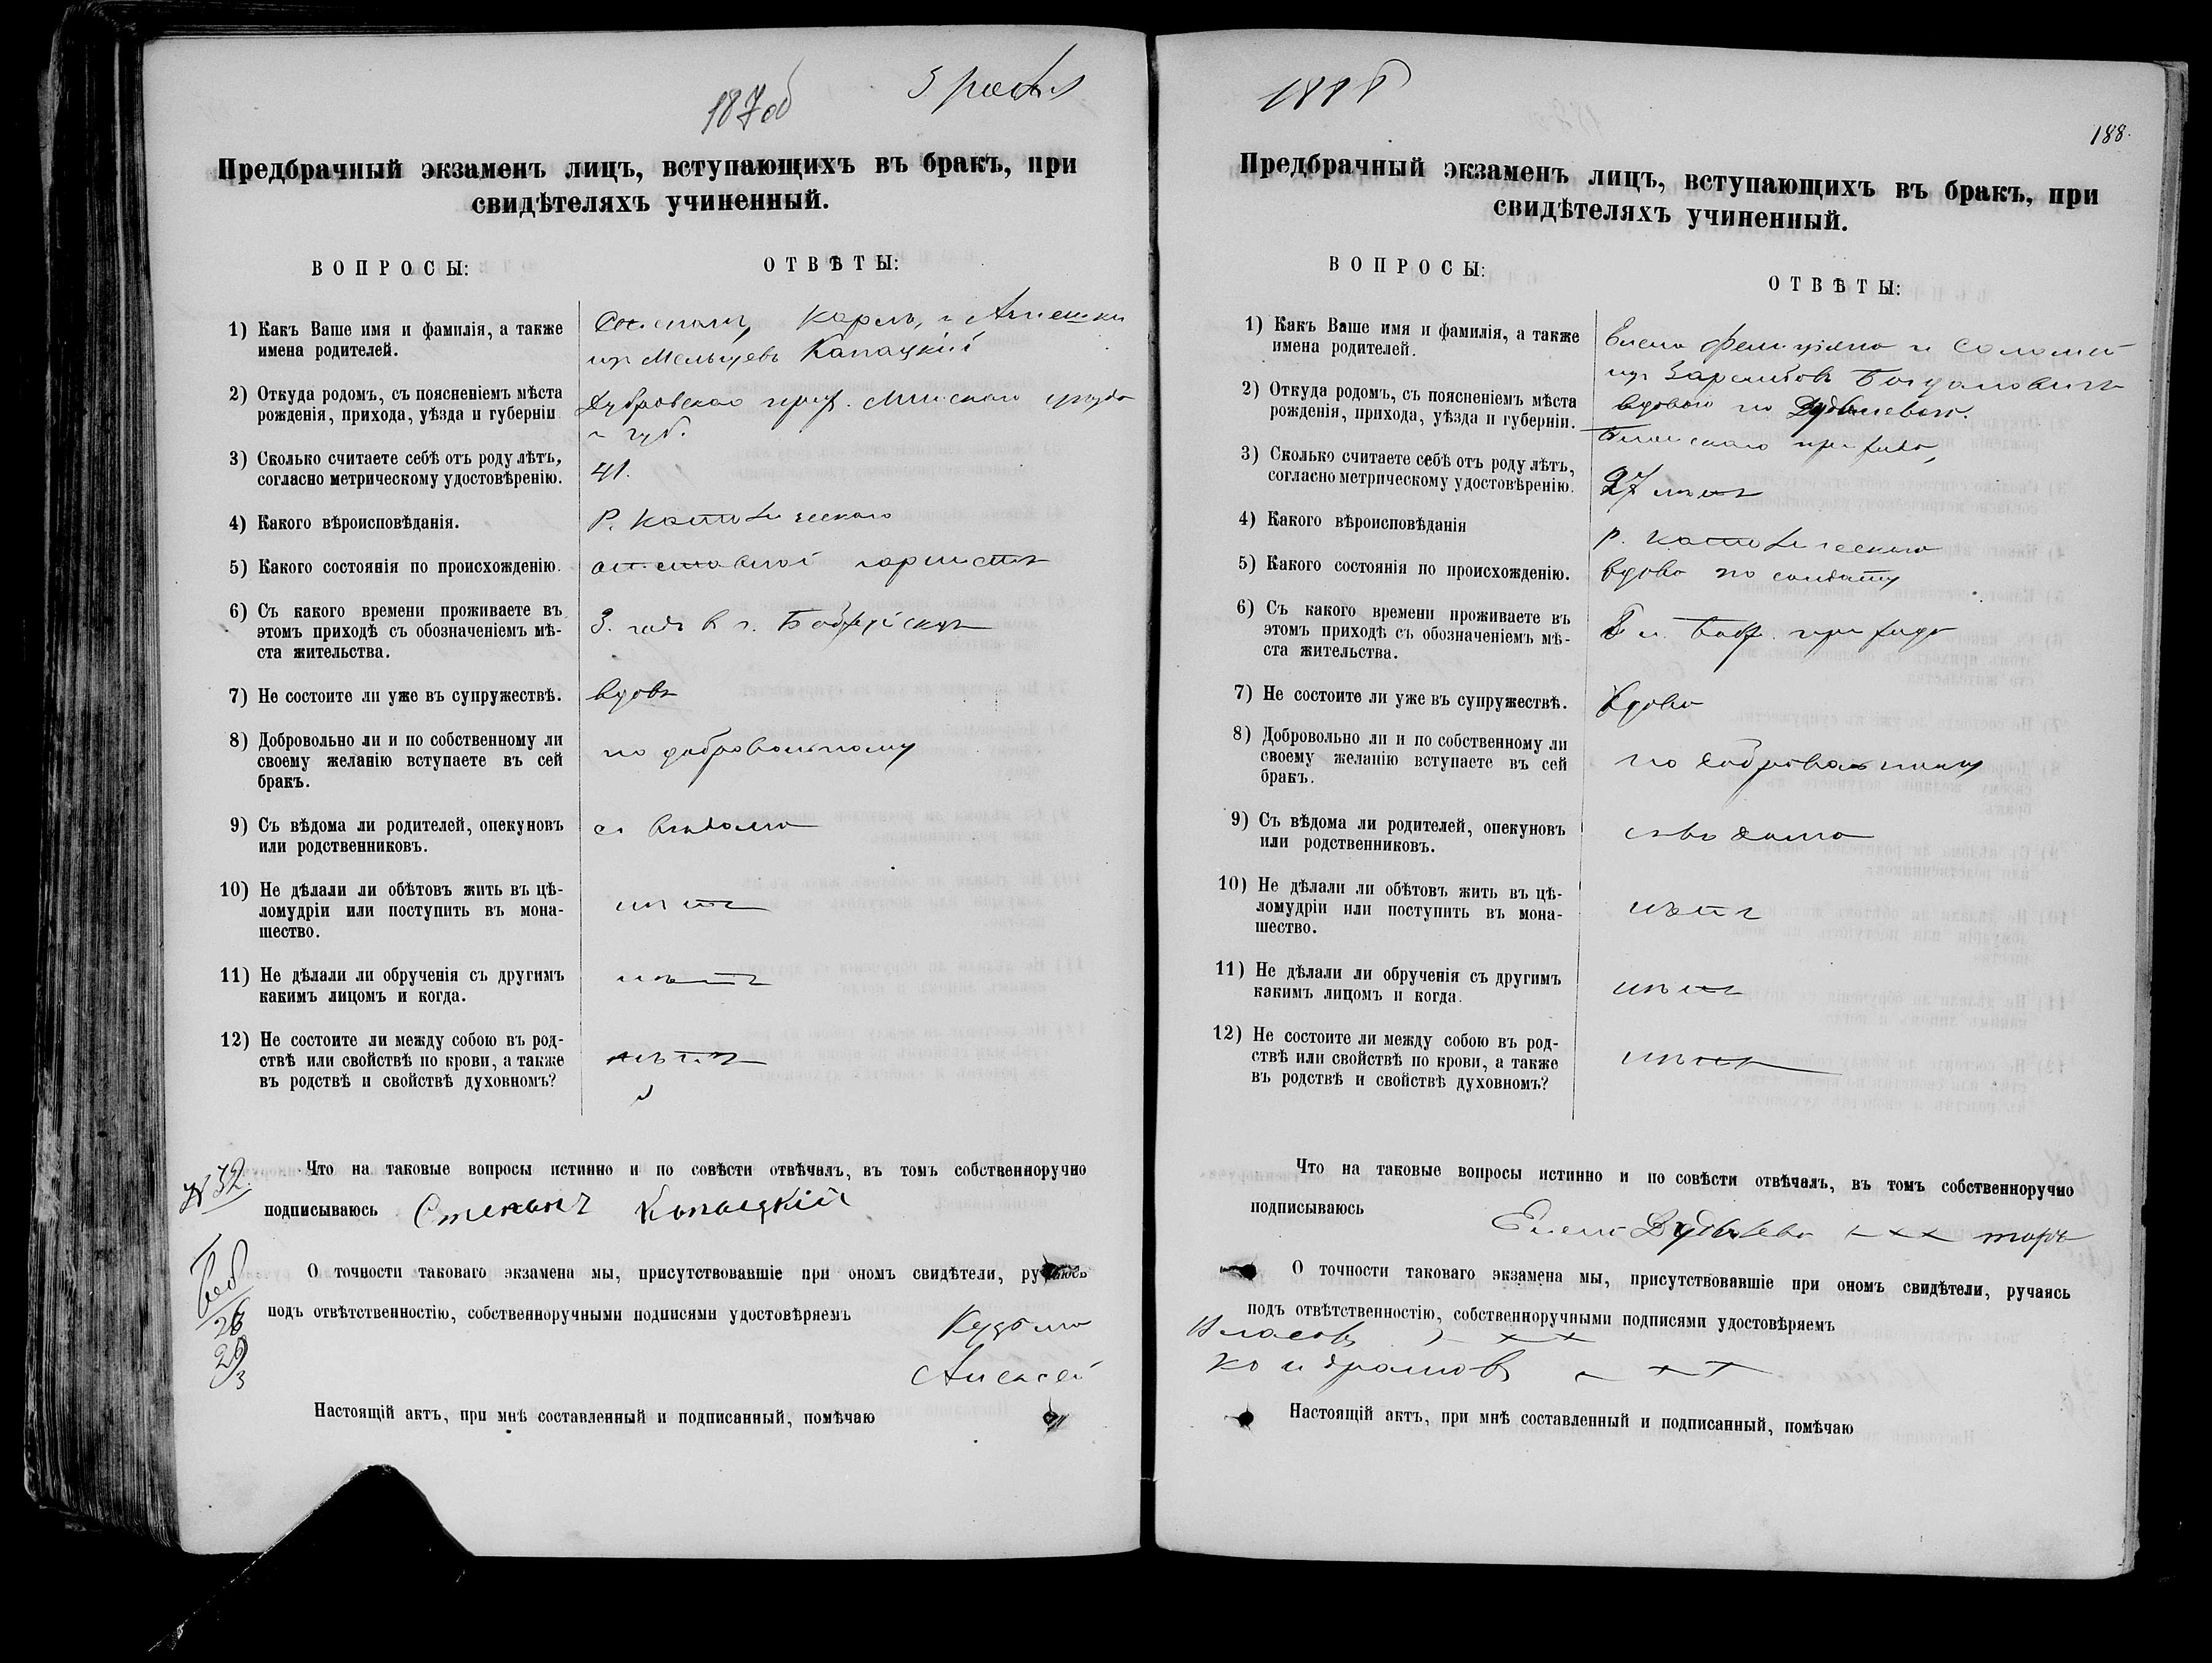 187об
Предбрачный экзаменъ лицъ, вступающихъ въ бракъ, при
свидѣтеляхъ учиненный.
ВОПРОСЫ:
ОТВѢТЫ:
1) Какъ Ваше имя и фамилія, а также
имена родителей.
Карла и Агнешки
Копацкій
2) Откуда родомъ, съ поясненіемъ мѣста
рожденія, прихода, уѣзда и губерніи
Дубровскаго прих. Минскаго уѣзда
и губ.
3) Сколько считаете себѣ отъ роду лѣтъ,
согласно метрическому удостовѣренію.
41.
4) Какого вѣроисповѣданія.
Р. Католическаго
5) Какого состоянія по происхожденію.
6) Съ какого времени проживаете въ
этомъ приходѣ съ обозначеніемъ мѣ-
ста жительства.
3. года в г. Бобруйскѣ
7) Не состоите ли уже въ супружествѣ.
вдовъ
8) Добровольно ли и по собственному ли
своему желанію вступаете въ сей
бракъ.
по добровольному
9) Съ вѣдома ли родителей, опекуновъ
или родственниковъ.
съ вѣдома
10) Не дѣлали ли обѣтовъ жить въ цѣ-
ломудріи или поступить въ мона-
шество.
нѣтъ
11) Не дѣлали ли обрученія съ другимъ
какимъ лицомъ и когда.
нѣтъ
12) Не состоите ли между собою въ род-
ствѣ или свойствѣ по крови, а также
въ родствѣ и свойствѣ духовномъ?
нѣтъ
Что на таковые вопросы истинно и по совѣсти отвѣчалъ, въ томъ собственноручно
№ 32.
подписываюсь Степанъ Копацкій
О точности таковаго экзамена мы, присутствовавшіе при ономъ свидѣтели, ручаюсь
подъ отвѣтственностію, собственноручными подписями удостовѣряемъ
Кузьма
Алексей
Настоящій актъ, при мнѣ составленный и подписанный, помѣчаю
188.
Предбрачный экзаменъ лицъ, вступающихъ въ бракъ, при
свидѣтеляхъ учиненный.
ВОПРОСЫ:
ОТВѢТЫ:
1) Какъ Ваше имя и фамилія, а также
имена родителей.
Елена Фелиціяна и Саломеи
Богдановичъ
вдова по
2) Откуда родомъ, съ поясненіемъ мѣста
рожденія, прихода, уѣзда и губерніи.
прихода,
3) Сколько считаете себѣ отъ роду лѣтъ,
согласно метрическому удостовѣренію.
27 лѣтъ
4) Какого вѣроисповѣданія
р. католическаго
5) Какого состоянія по происхожденію.
вдова по солдату
6) Съ какого времени проживаете въ
этомъ приходѣ съ обозначеніемъ мѣ-
ста жительства.
Бобр. прихода
7) Не состоите ли уже въ супружествѣ.
вдова
8) Добровольно ли и по собственному ли
своему желанію вступаете въ сей
бракъ.
по добровольному
9) Съ вѣдома ли родителей, опекуновъ
или родственниковъ.
съ вѣдома
10) Не дѣлали ли обѣтовъ жить въ цѣ-
ломудріи или поступить въ мона-
шество.
нѣтъ
11) Не дѣлали ли обрученія съ другимъ
какимъ лицомъ и когда.
нѣтъ
12) Не состоите ли между собою въ род-
ствѣ или свойствѣ по крови, а также
въ родствѣ и свойствѣ духовномъ?
нѣтъ
Что на таковые вопросы истинно и по совѣсти отвѣчалъ, въ томъ собственноручно
подписываюсь
Елена
О точности таковаго экзамена мы, присутствовавшіе при ономъ свидѣтели, ручаясь
подъ отвѣтственностію, собственноручными подписями удостовѣряемъ
Власовъ
Кондратовъ
Настоящій актъ, при мнѣ составленный и подписанный, помѣчаю